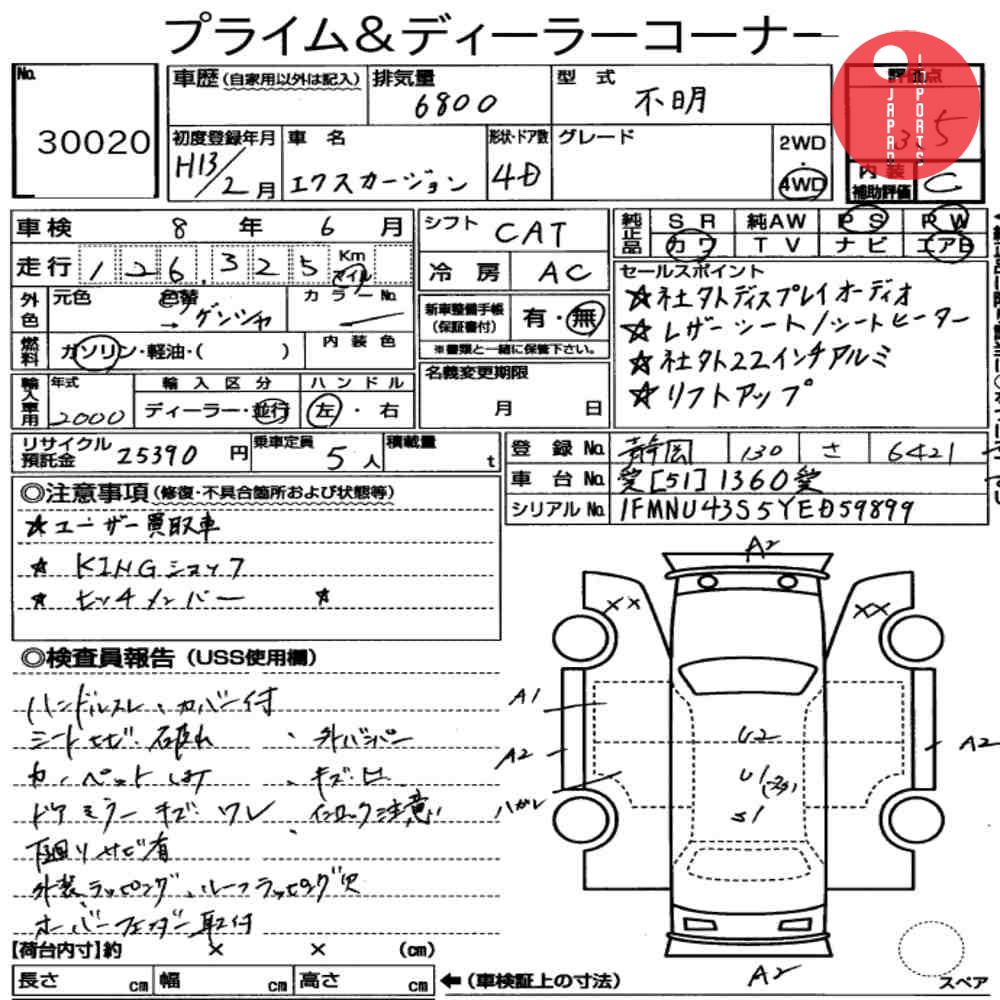 プライム&ディーラーコーナー
No.
30020
車歴(自家用以外は記入)
排気量
6800
型式
不明
評価点
3.5
JAPAN
IMPORTS
初度登録年月
H13/2月
車名
エクスカージョン
形状・ドア数
4D
グレード
2WD
・
4WD
内装
補助評価
C
車検 8年 6月
シフト CAT
純正品
SR 純AW PS PW
カワ TV ナビ エアB
走行 126,325 Km マイル
冷房 AC
セールスポイント
☆社外ディスプレイオーディオ
☆レザーシート/シートヒーター
☆社外22インチアルミ
☆リフトアップ
外色
元色
色替
→ ゲンシャ
カラーNo.
新車整備手帳
(保証書付)
有・無
※書類と一緒に保管下さい。
燃料
ガソリン・軽油・( )
内装色
名義変更期限
月 日
輸入車用
年式
2000
輸入区分
ディーラー・並行
ハンドル
左・右
リサイクル
預託金
25390円
乗車定員
5人
積載量
t
登録No. 静岡 130 さ 6421
車台No. 愛[51]1360愛
シリアルNo. 1FMNU43S5YED59899
◎注意事項(修復・不具合箇所および状態等)
☆ユーザー買取車
☆ KINGショップ
☆ ヒッチメンバー ☆
◎検査員報告(USS使用欄)
ハンドルスレ、カバー付
シートヒビ・破れ 、外バンパー
カーペット 、キズ・凹
ドアミラーキズ・ワレ 、インロック注意
下廻りサビ有
外装ラッピング、ルーフラッピング穴
オーバーフェンダー取付
A2
XX
XX
A1
A2
ハガレ
U2
U1
S1
A2
A2
【荷台内寸】約 × × (cm)
長さ cm 幅 cm 高さ cm
←(車検証上の寸法)
スペア